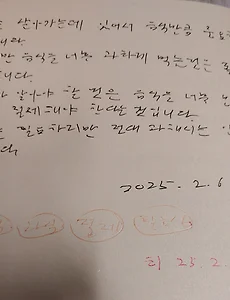 살아가는데 있어서 음식만큼 중요
니다.
만 음식을 너무 과하게 먹는것은
니다.
알아야 할 것은 음식을 너무
절제해야 한다는 것입니다.
필요하지만 절대 과해서는
다.
2025. 2. 6
음식 절제
회 25. 2.